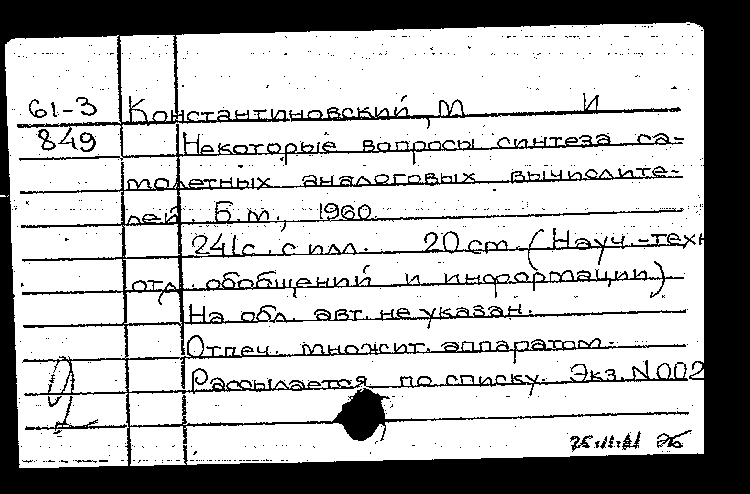 61-3 Константиновский, М И
849 Некоторые вопросы синтеза са-
молетных аналоговых вычислите-
лей. Б.м., 1960
241с. с илл. 20 cm. (Науч.-техн
отд. обобщений и информации)
На обл. авт. не указан.
Отпеч. множит. аппаратом.
Рассылается по списку. Экз. N 002